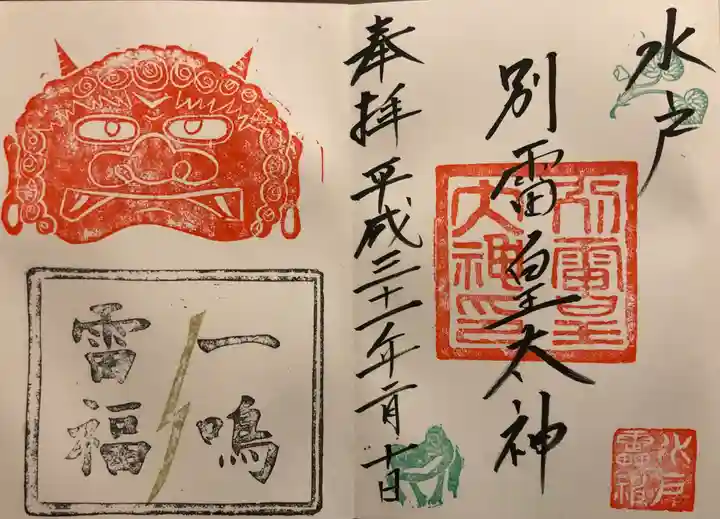 水戸
別雷皇太神
別雷皇
大神印
水戸
雷神
奉拝 平成三十一年二月十日
一鳴
雷福